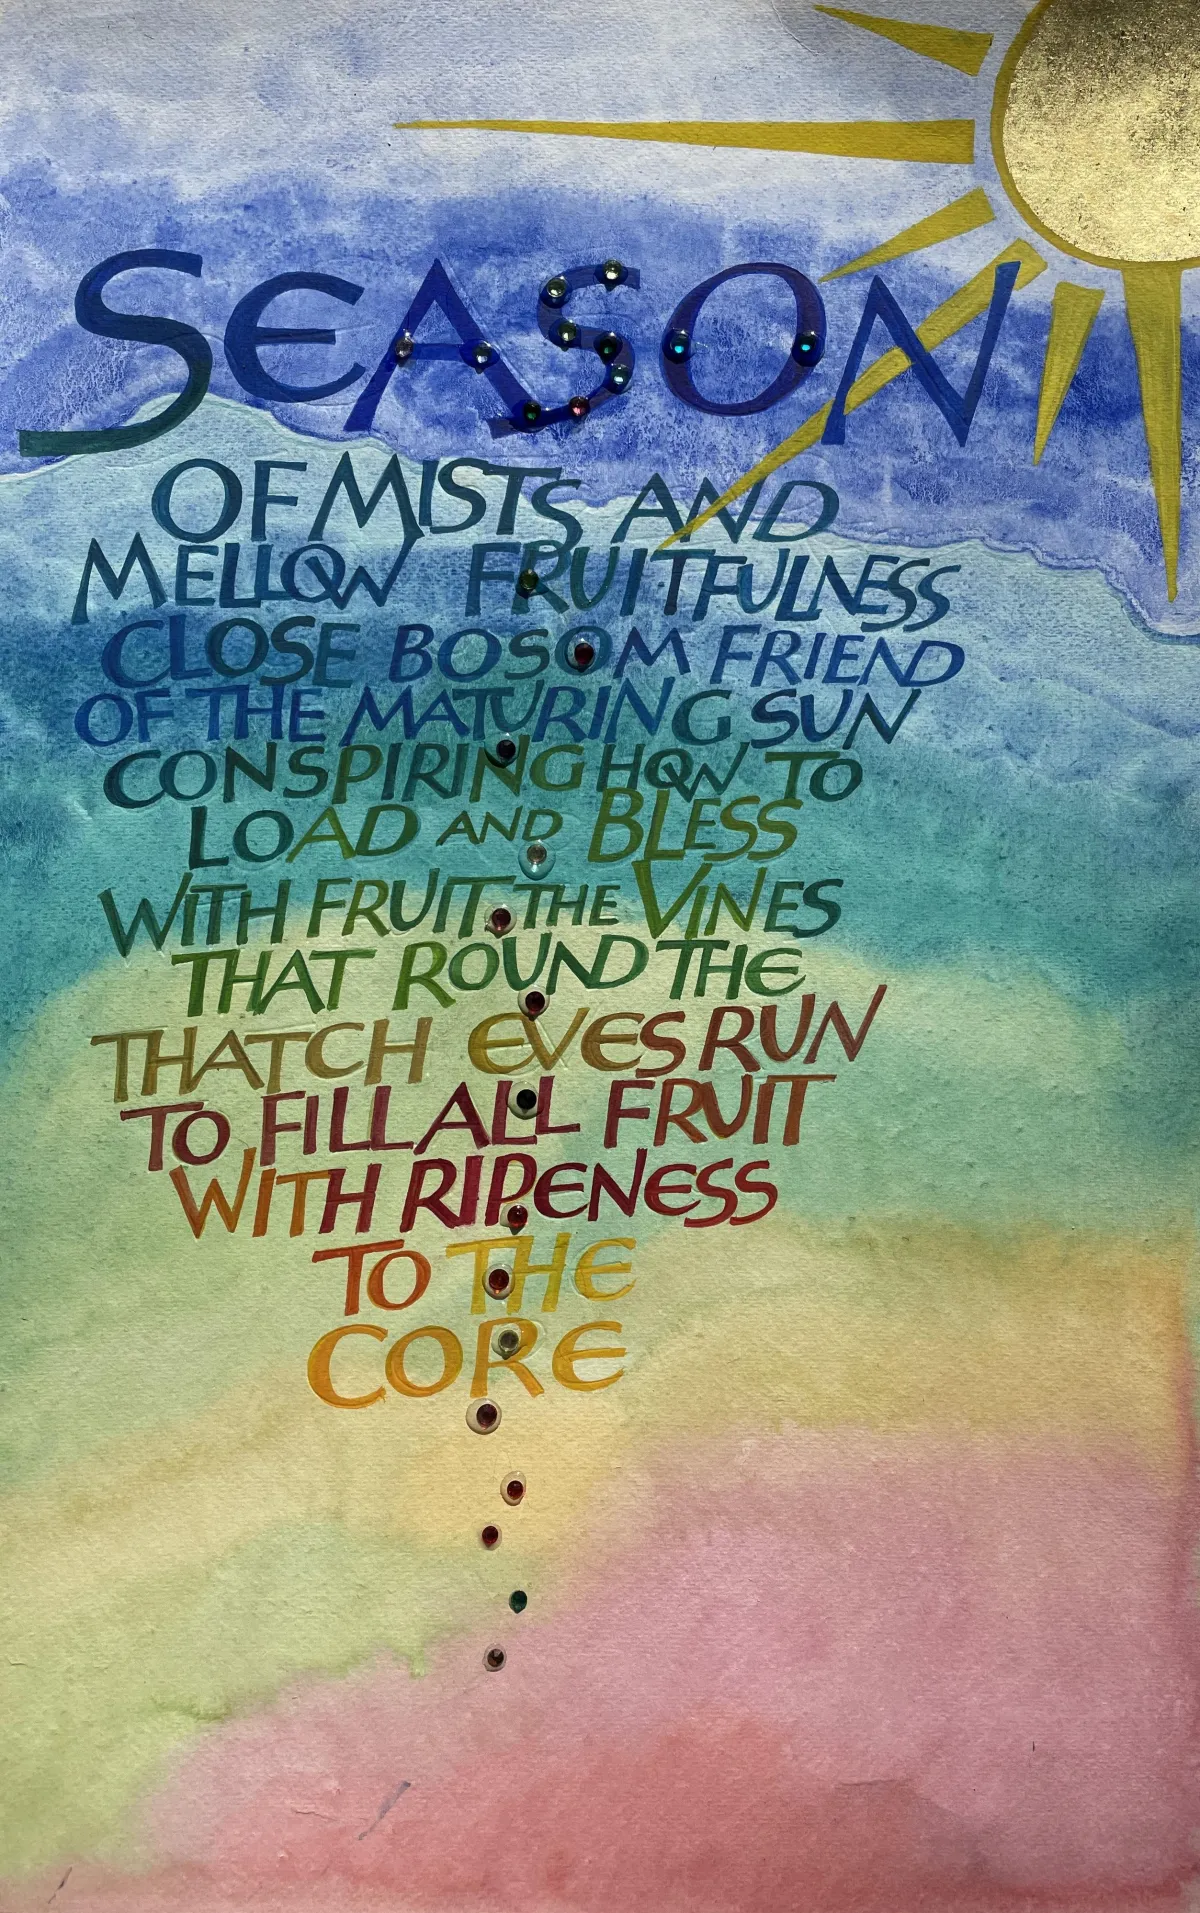 SEASON
OF MISTS AND
MELLOW FRUITFULNESS
CLOSE BOSOM FRIEND
OF THE MATURING SUN
CONSPIRING HOW TO
LOAD AND BLESS
WITH FRUIT THE VINES
THAT ROUND THE
THATCH EVES RUN
TO FILL ALL FRUIT
WITH RIPENESS
TO THE
CORE